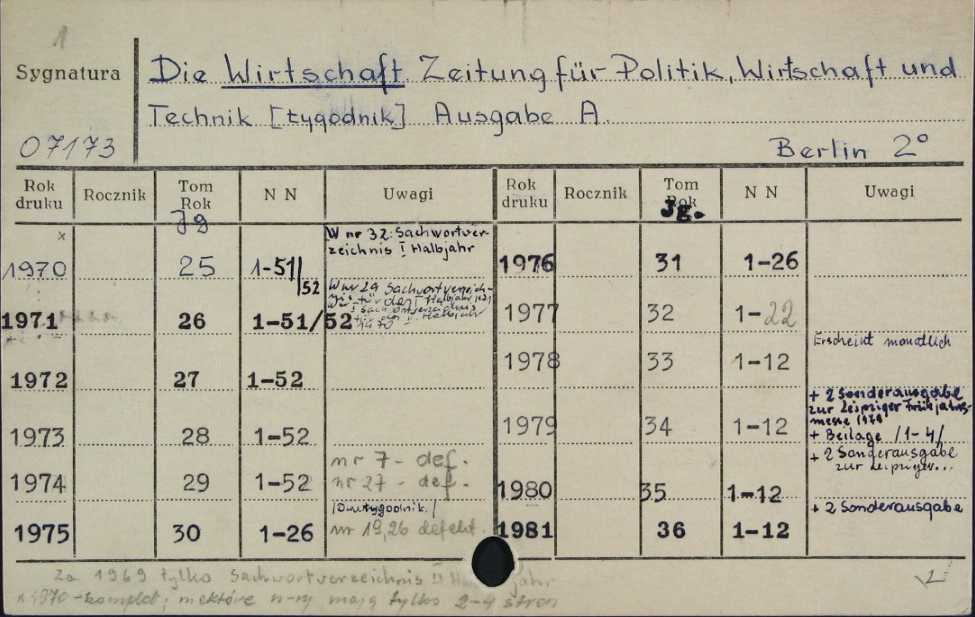 1
Sygnatura
Die Wirtschaft Zeitung für Politik, Wirtschaft und
Technik [tygodnik] Ausgabe A.
07173
Berlin 2°
Rok druku Rocznik Tom Rok N N Uwagi Rok druku Rocznik Tom Rok N N Uwagi
Jg Jg.
x W nr 32: Sachwortver-
zeichnis I Halbjahr
1970 25 1-51/52 1976 31 1-26
W nr 29 Sachwortverzeich-
nis für den I Halbjahr 1971
1971 26 1-51/52 1977 32 1-22
Erscheint monatlich
1972 27 1-52 1978 33 1-12
+ 2 Sonderausgabe
zur Leipziger Frühjahrs-
messe 1979
1973 28 1-52 1979 34 1-12 + Beilage /1-4/
nr 7 - def. + 2 Sonderausgabe
zur Leipziger...
1974 29 1-52 nr 27 - def. 1980 35 1-12
/Dwutygodnik./ + 2 Sonderausgabe
1975 30 1-26 nr 19,26 defekt. 1981 36 1-12
Za 1969 tylko Sachwortverzeichnis II Halbjahr
x 1970 - komplet; niektóre n-ry mają tylko 2-4 stron